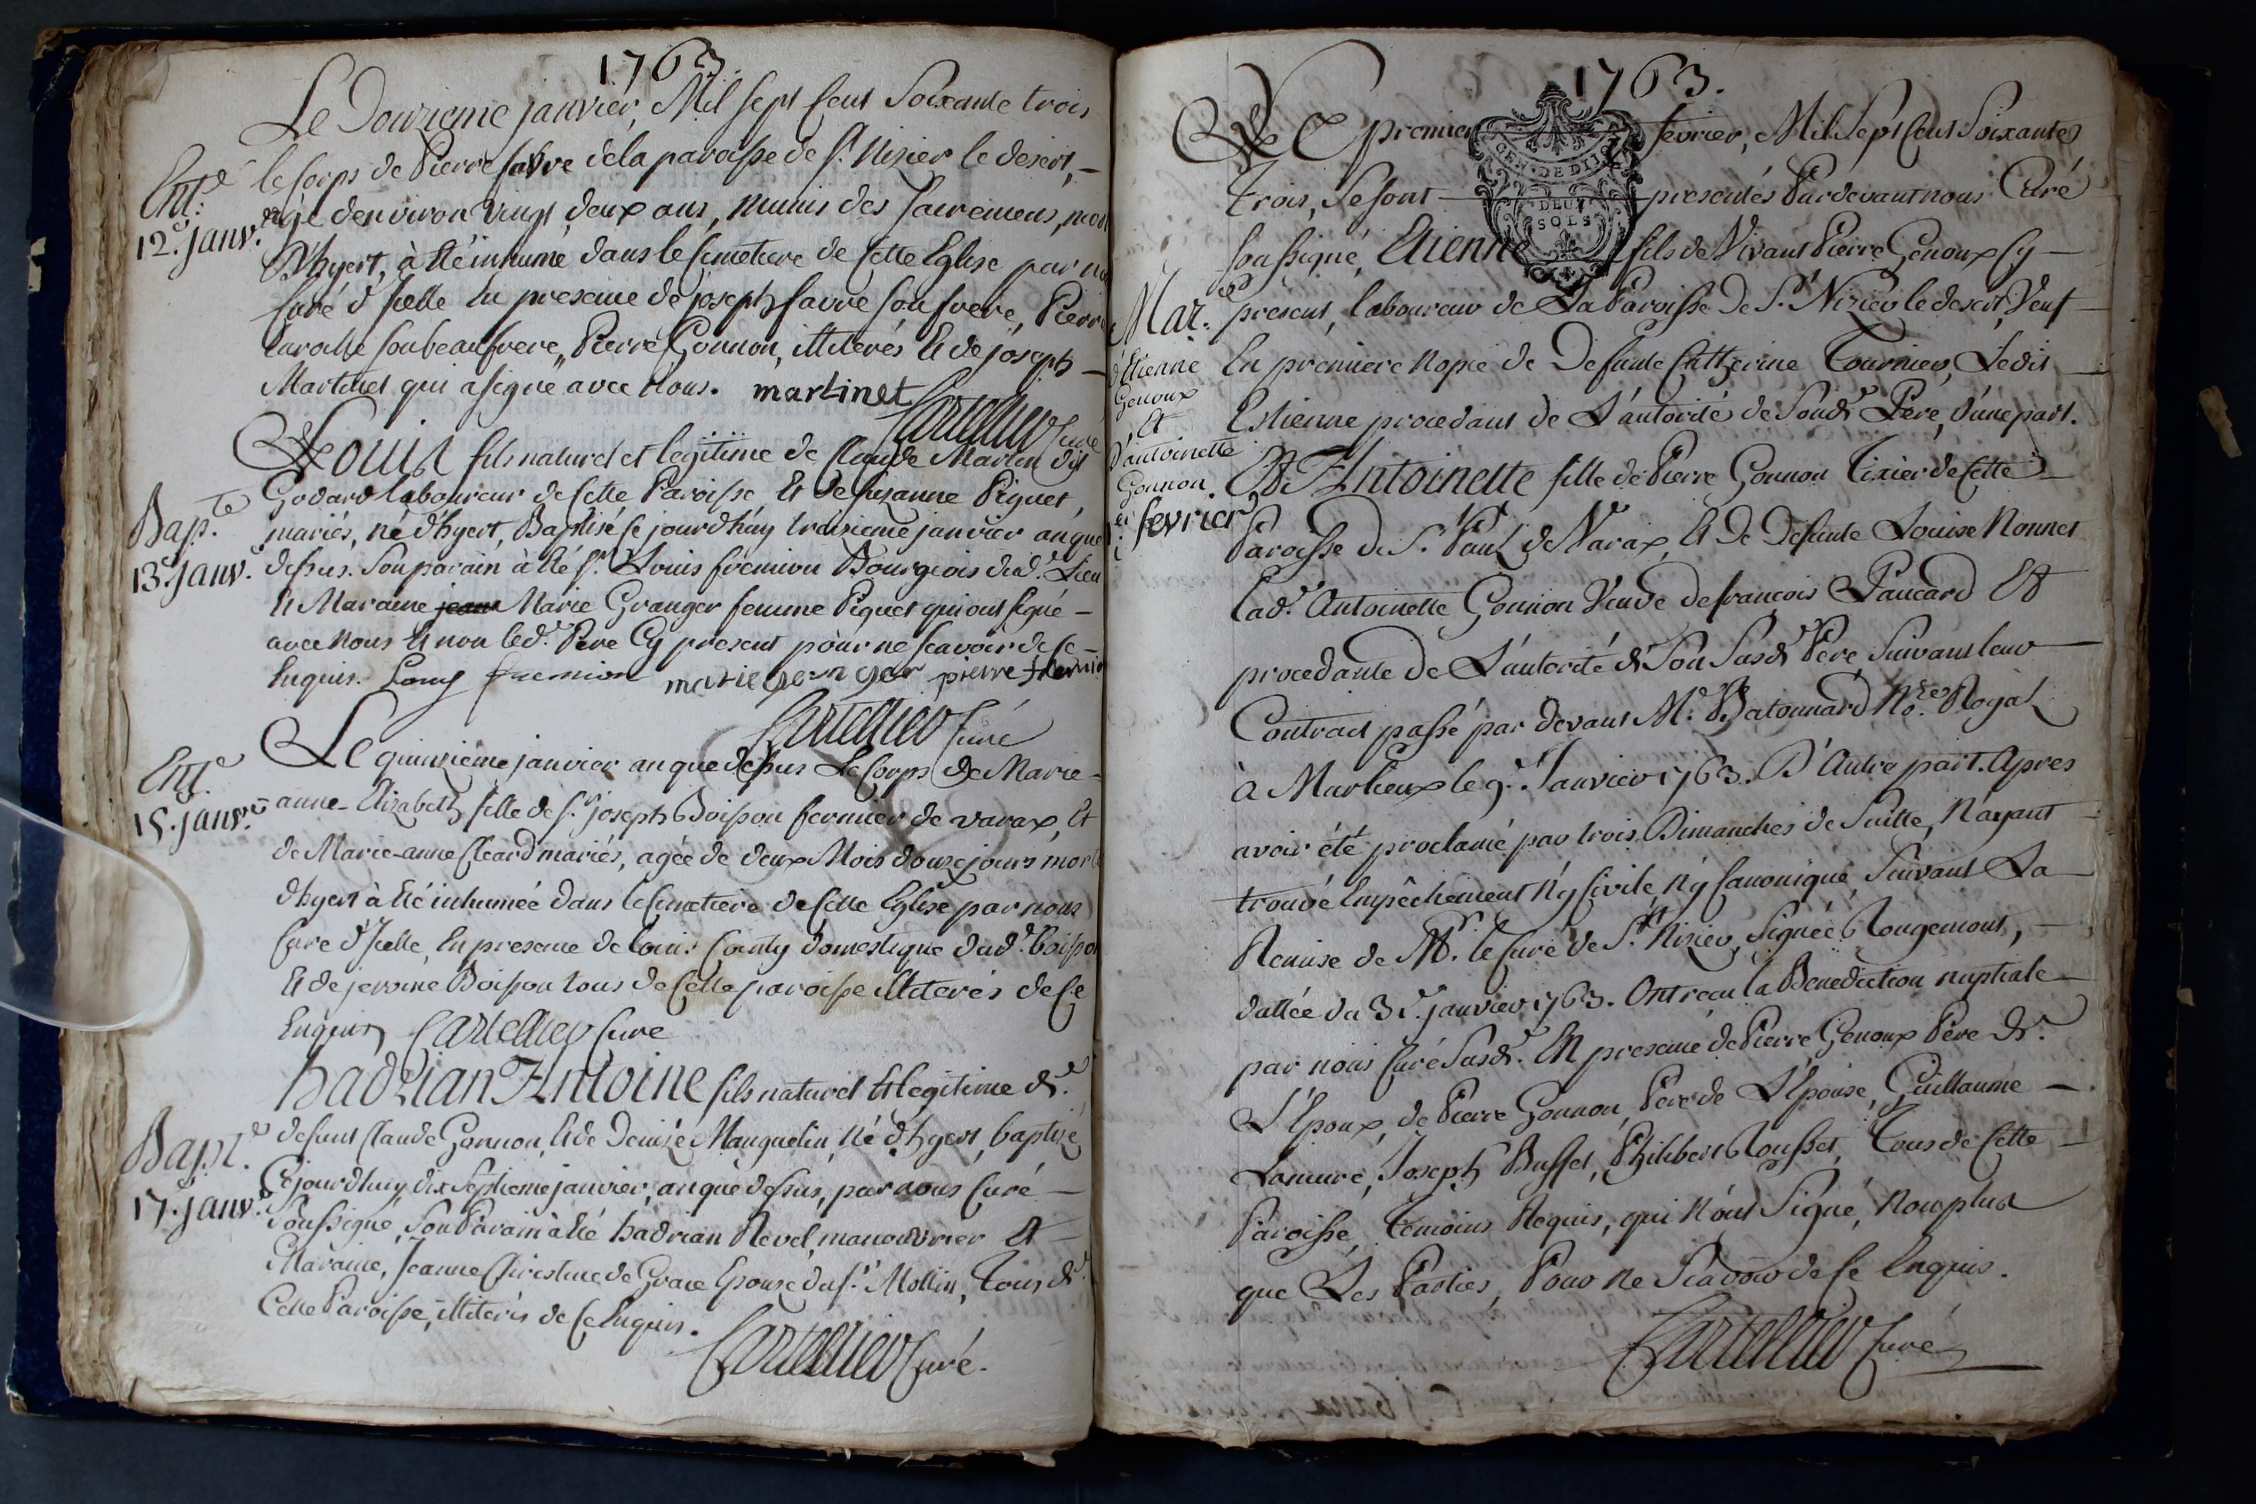 1763
Le Douzieme janvier, Mil sept Cent Soixante trois
Ent.e
12.e janv.r
le Corps de Pierre favre de la paroisse de S.t Nizier le desert, —
agé denviron vingt deux ans, munis des Sacremens, mort
D'hyert, à été inhumé dans le Cimetiere de Cette Eglise par nous
Curé d'Icelle En presence de joseph favre son frere, Pierre
son beaufrere, Pierre Gonnon, illiterés Et de joseph —
Martinet qui a signé avec Nous. martinet
Cartellier Curé
Louis fils naturel et legitime de Claude Martin dit
Godard laboureur de Cette Paroisse Et de Suzanne Piquet,
Bap.te
13.e janv.
mariés, né d'hyert, Baptisé Ce jourdhuy treizieme janvier an que
dessus. Son parain à été S.r Louis fremion Bourgeois dud. Lieu
Et Maraine jeann Marie Granger femme Piquet qui ont signé —
avec Nous Et non led. Pere Cy present pour ne scavoir de Ce —
Enquis. Louy fremion marie gernger pierre fremion
Cartellier Curé
Ent.e
15. janv.r
Le quinzieme janvier an que dessus Le Corps de Marie-
anne-Elizabeth fille de S.r joseph Boisson fermier de varax, Et
de Marie-anne Cleard mariés, agée de deux Mois douze jours morte
d'hyert à été inhumée dans le Cimetiere de Cette Eglise par nous
Curé d'Icelle, En presence de Louis County domestique dud. boisson
Et de jerome Boisson tous de Cette paroisse illiterés de Ce
Enquis Cartellier Curé
hadrian Antoine fils naturel Et legitime de
Bapt.e
17. janv.r
defunt Claude Gonnon, Et de Denise Manguelin, Né d'hyert, baptisé
Cejourdhuy dix Septieme janvier, an que dessus, par nous Curé —
Soussigné, Son Parain à été hadrian Revel, manouvrier Et —
Maraine, Jeanne Christine de Grace Epouse du S.r Mollin, Tous de
Cette Paroisse, illiterés de Ce Enquis.
Cartellier Curé.
1763.
Ce premier fevrier, Mil Sept Cent Soixante
GEN. DE DIJON
DEUX
SOLS
Trois, Se sont — presentés Pardevant nous Curé
soussigné, Etienne fils de Vivant Pierre Genoux Cy —
Mar.e
d'Etienne
Genoux
Et
D'antoinette
Gonnon
fevrier
present, laboureur de La Paroisse De S.t Nizier le desert, Veuf —
En premiere Nopce de Defunte Catherine Tournier, Ledit —
Estienne procedant de L'autorité de Sond. Pere, d'une part.
Et Antoinette fille de Pierre Gonnon Tixier de Cette —
Paroisse De S.t Paul de Varax, Et De Defunte Louise Nonnet
Lad. Antoinette Gonnon Veuve de françois Paucard Et
procedante de L'autorité de Son Susd. Pere, Suivant leur
Contract passé par devant M.e Batonnard No.re Royal
à Marlieux le 9.e Janvier 1763. D'Autre part. Apres
avoir été proclamé par trois Dimanches de Suitte, N'ayant
trouvé Empêchement N'y Civile, N'y Canonique, Suivant La
Remise de M.r le Curé de S.t Nizier, Signée Rougemont, —
dattée du 31. janvier 1763. Ont reçu la Benediction nuptiale —
par nous Curé Susd. En presence de Pierre Genoux Père de
L'Epoux, de Pierre Gonnon, Père de L'Epouse, Guillaume —
Lamure, Joseph Buffet, Philibert Rousset, Tous de Cette —
Paroisse, Temoins Requis, qui N'ont Signé, Non plus
que Les Parties, Pour Ne Scavoir de Ce Enquis.
Cartellier Curé